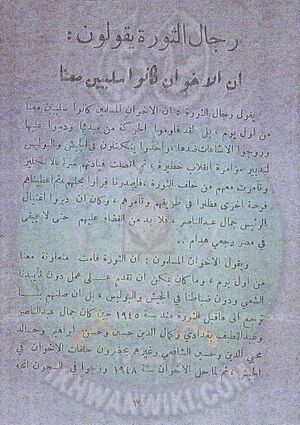 رجال الثورة يقولون :
ان الاخوان كانوا سلبيين معنا
يقول رجال الثورة : ان الاخوان المسلمين كانوا سلبيين معنا
من اول يوم ، بل لقد قاوموا الحركة من مبدئها ودسوا عليها
وروجوا الاشاعات ضدها ، واخذوا يتكتلون في الجيش والبوليس
لتدبير مؤامرة انقلاب خطيرة ، ثم اتصلت قيادتهم سرا بالانجليز
وتآمرت معهم من خلف الثورة ، فاصدرنا قرارا بحلهم ، ثم اعطيناهم
فرصة اخرى فظلوا في طريقهم وتآمرهم ، وكان ان دبروا اغتيال
الرئيس جمال عبدالناصر ، فلا بد من القضاء عليهم حتى لا يبقى
في مصر رجعي هدام ..
ويقول الاخوان المسلمون : ان الثورة قامت متعاونة معنا
من اول يوم ، وما كان يمكن ان تقدم على عمل دون تأييدنا
الشعبي ودون ضباطنا في الجيش والبوليس ، بل ان صلتهم بنا
ترجع الى ماقبل الثورة بمنذ سنة ١٩٤٥ حين كان جمال عبدالناصر
وعبداللطيف بغدادي وكمال الدين حسين وحسن ابراهيم وخالد
محيي الدين وحسين الشافعي وغيرهم يحضرون حلقات الاخوان في
الجيش ، ثم لما حل الاخوان سنة ١٩٤٨ وزجوا في السجون اتجه
IKHWANWIKI.COM